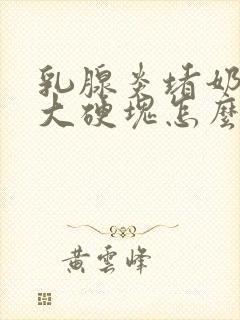 乳腺炎堵奶
大硬塊怎麼
黄雲峰